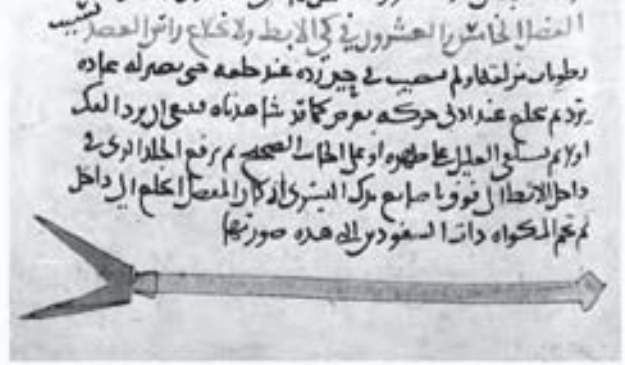 بسبب
الفصل الخامس والعشرون في كي الابط ولانخلاع راس العضد
رطوبات مزلقة او لم يثبت في حين رده عند خلعه حتى يصير له عادة
يرتد ثم ينخلع عند ادنى حركة تعرض كما قد شاهدناه فينبغي ان يرد الفك
اولا ثم يستلقي العليل على ظهره او على الجانب الصحيح ثم ترفع الجلد الذي في
داخل الابط الى فوق باصابع يدك اليسرى ان كان المفصل انخلع الى داخل
ثم تحمي المكواه ذات السفودين التي هذه صورتها